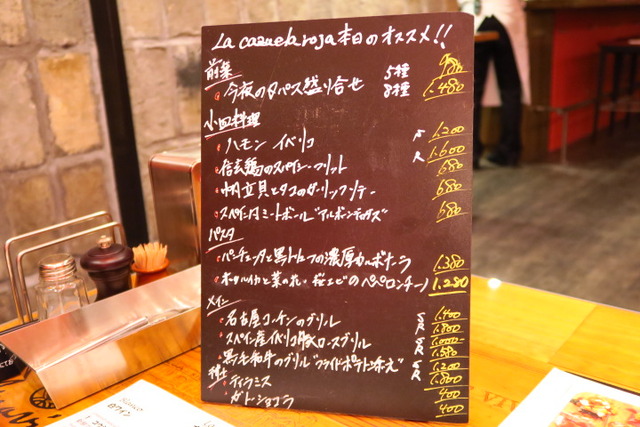 La cazuela roja 本日のオススメ!!
前菜
・今夜のタパス盛り合せ 5種 980
8種 1.480
小皿料理
・ハモン イベリコ S 1.200
R 1.600
・信玄鶏のスペイン・フリット 680
・帆立貝とタコのガーリックソテー 680
・スペイン風ミートボール"アルボンディガス" 680
パスタ
・パンチェッタと黒トリュフの濃厚カルボナーラ 1.380
・ホタルイカと菜の花、桜エビのペペロンチーノ 1.280
メイン
・名古屋コーチンのグリル S 1.400
R 1.800
・スペイン産イベリコ豚ロースグリル S 1.000-
R 1.580
・黒毛和牛のグリル"フライドポテト添え" S 1.200
R 1.800
・ティラミス 400
・ガトーショコラ 400
白ワイン